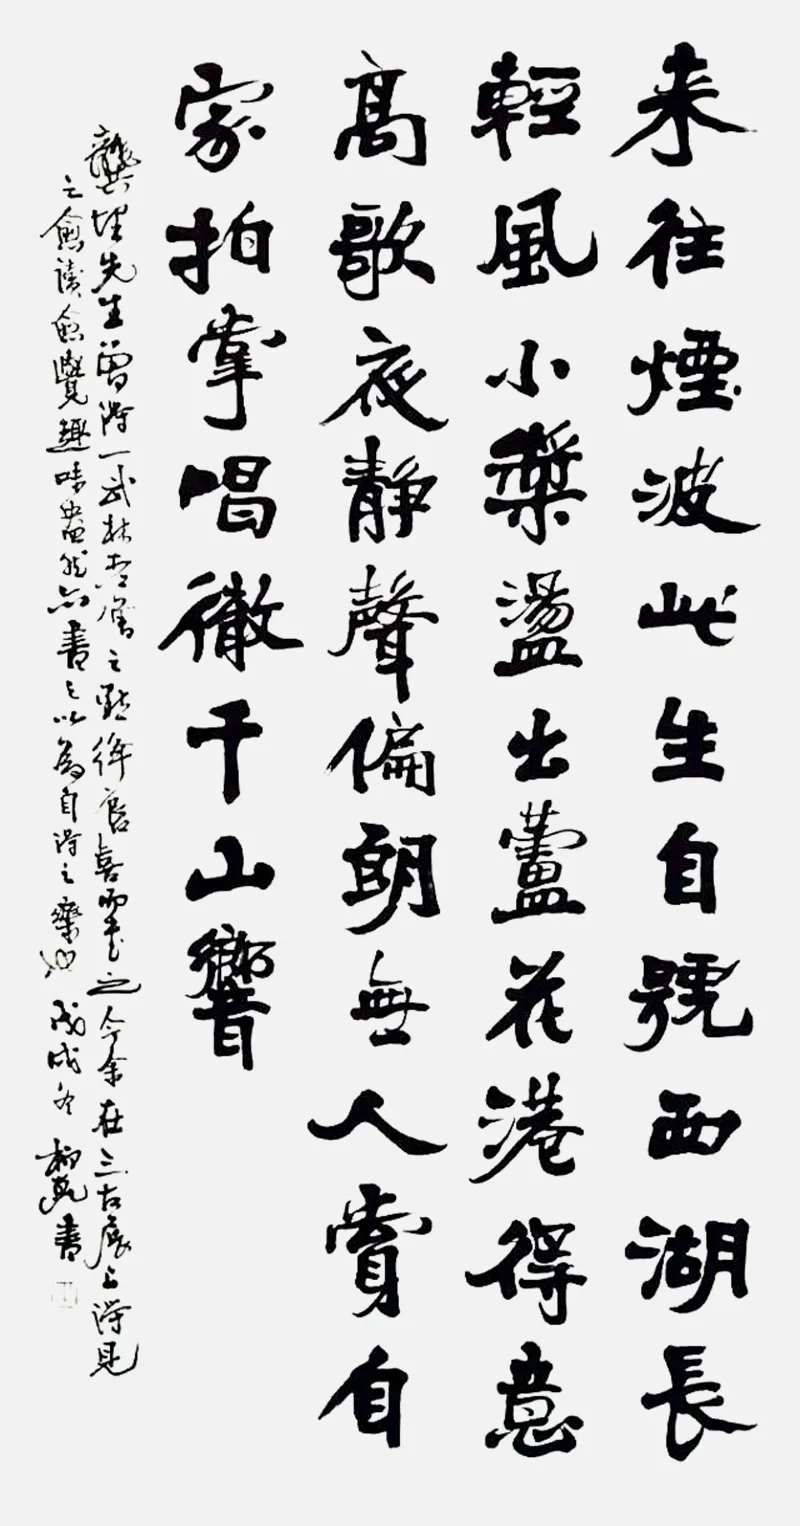 来往煙波此生自號西湖長
輕風小槳盪出蘆花港得意
高歌夜靜聲偏朗無人賞自
家拍掌唱徹千山響
龔埋先生曾得一武林之聯徐官喜四之今余在三古展上得見
之愈讀愈覺趣味盎然亦書之以為自得之樂也戊戌冬柳乾書